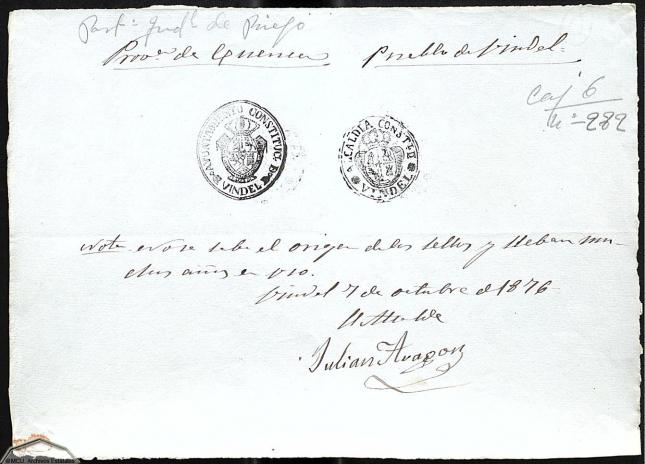 Part.º Jud.l de Priego
Prov.ª de Cuenca Pueblo de Vindel=
Caj 6
nº-282
AYUNTAMIENTO CONSTITUC. DE VINDEL
ALCALDIA CONST.L DE VINDEL
Nota no se sabe el origen de los sellos y lleban mu-
chos años en uso.
Vindel 7 de octubre d 1876
El Alcalde
Julian Aragon
©MCU. Archivos Estatales